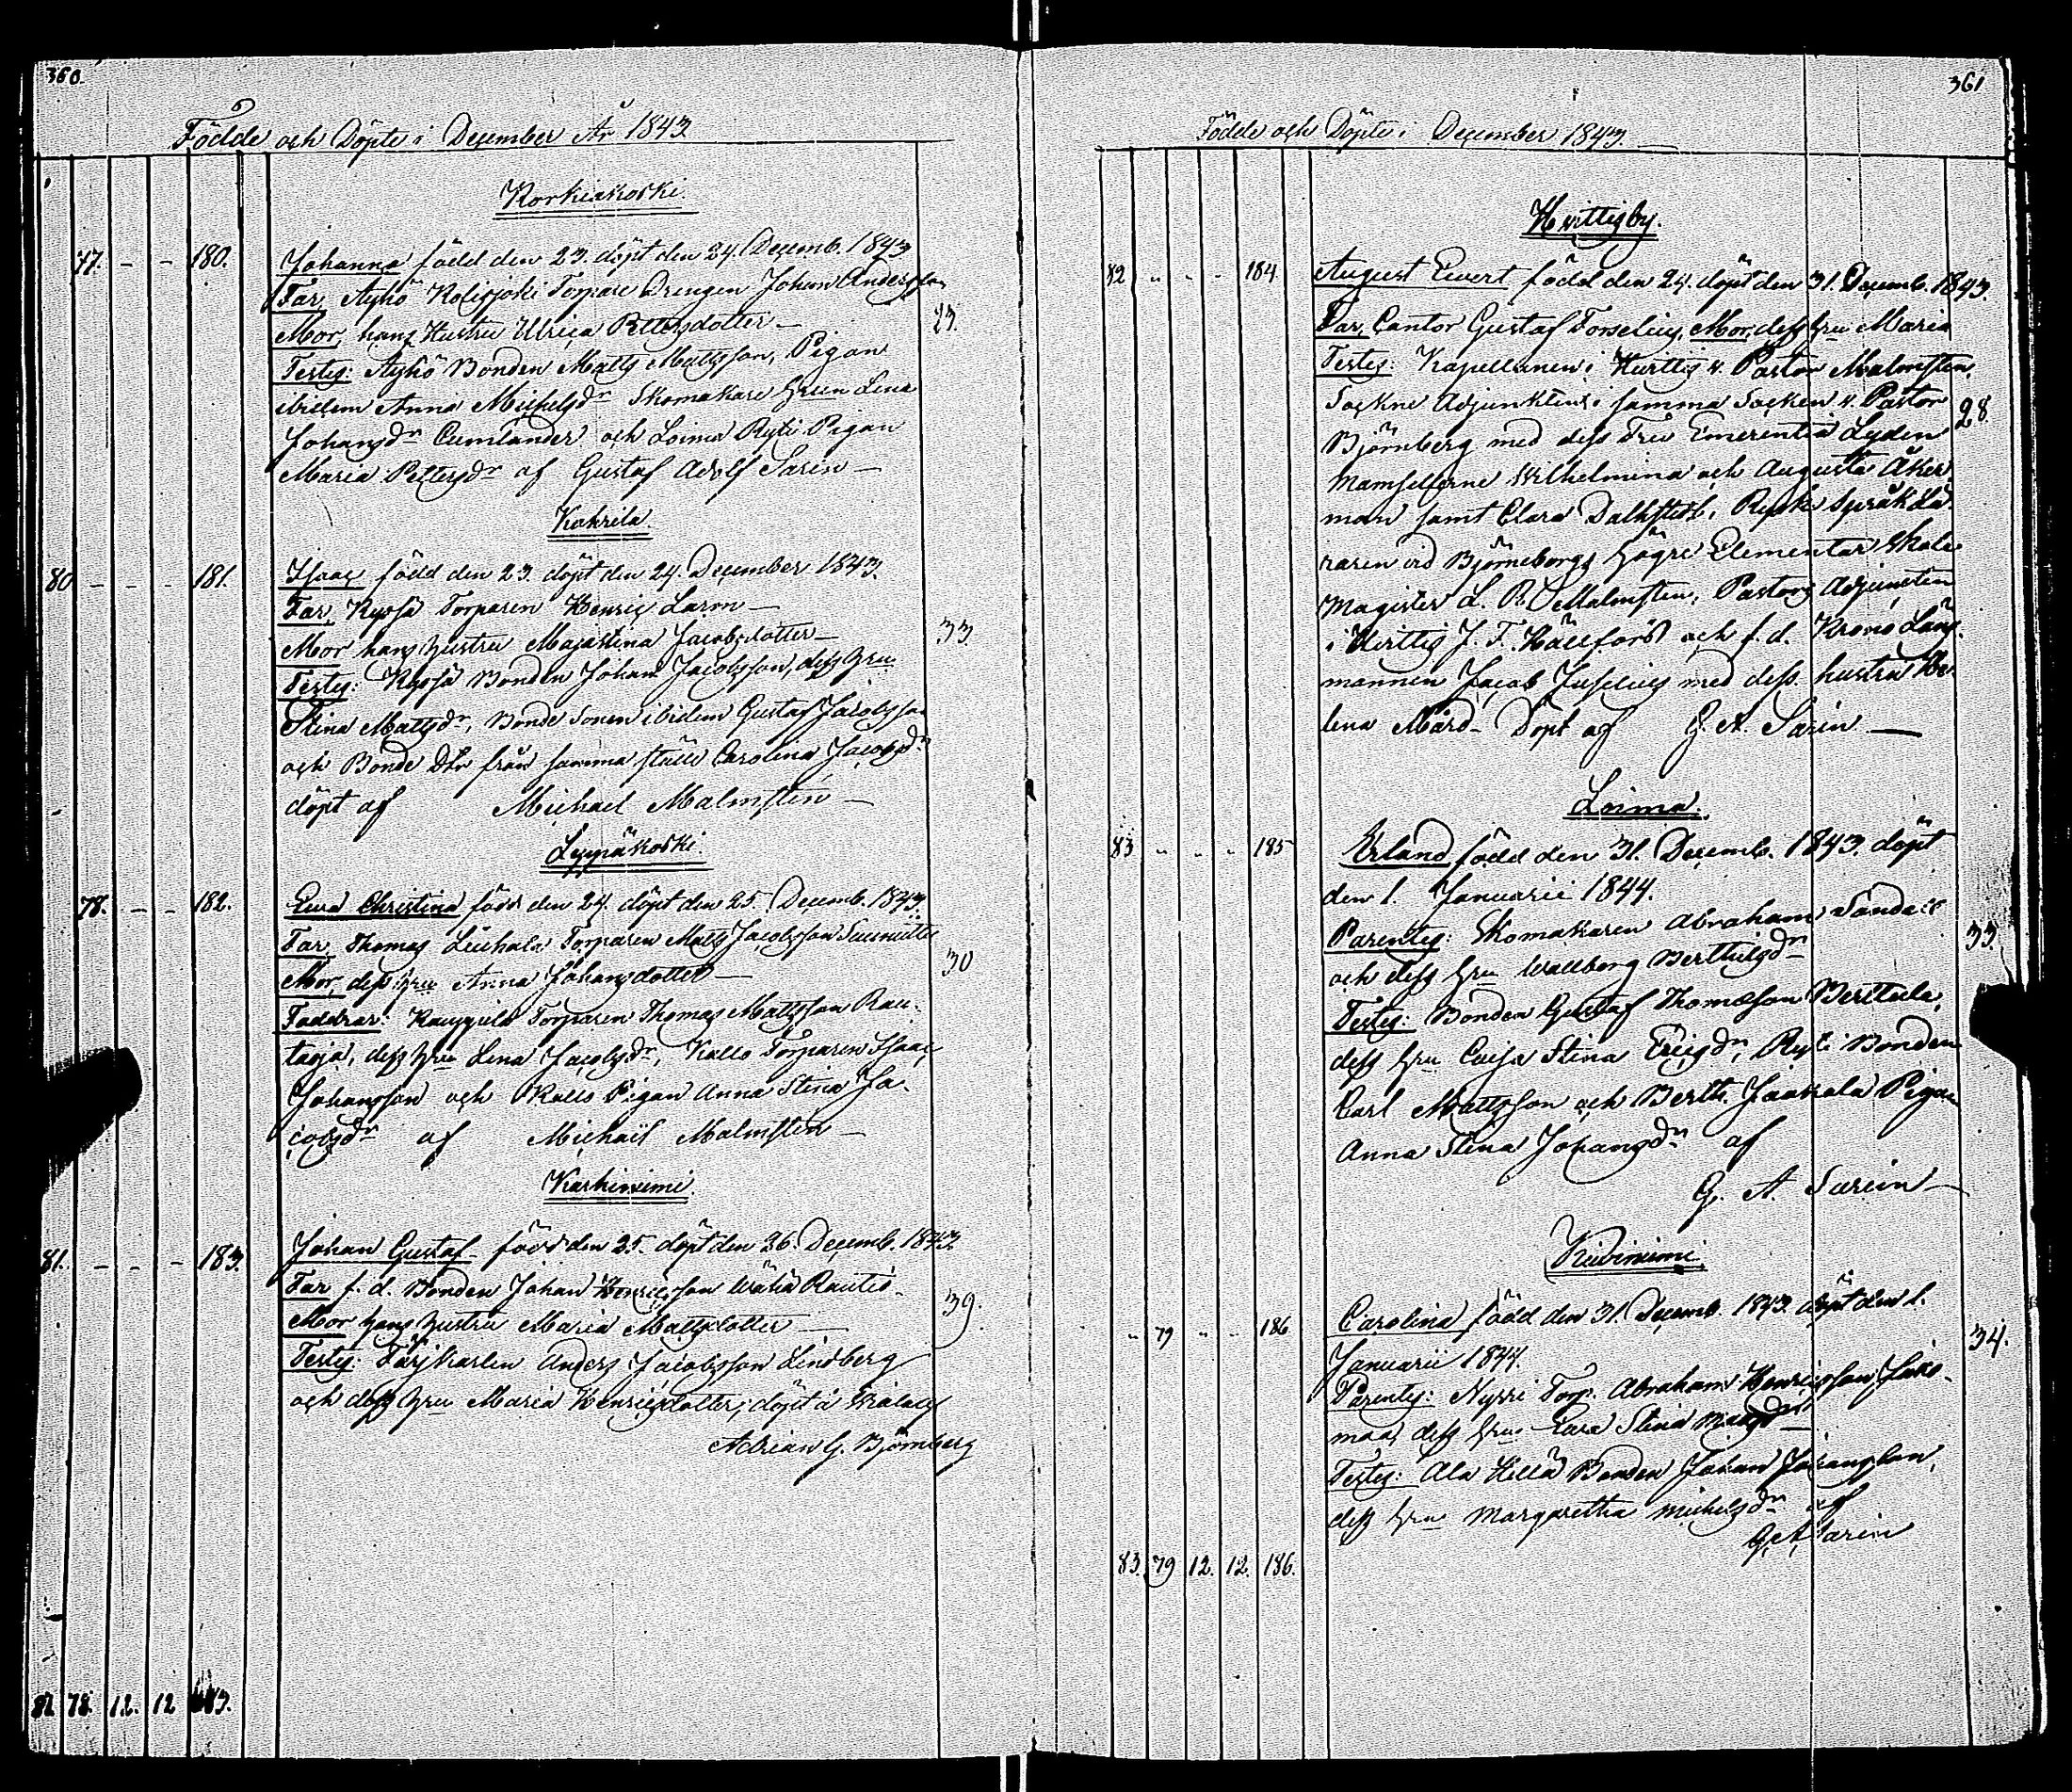 360.
Födde och Döpte i December År 1843
Korkiakoski.
77. - - 180. Johanna född den 23. döpt den 24. Decemb. 1843
Far, Äyhö Kolisjoki Torpare Drengen Johan Andersson
Mor, hans Hustru Ulrica Pettersdotter - 23.
Testes: Äyhö Bonden Matts Mattsson, Pigan
ibidem Anna Michelsdr Skomakare Lena
Johansdr Cumlander och Loima Ryti Pigan
Maria Pettersdr af Gustaf Adolf Sarin -
Kahrila.
80 - - - 181. Isaac född den 23. döpt den 24. December 1843.
Far, Torparen Henric Larsn -
Mor hans hustru Maja Stina Jacobsdotter - 33
Testes: Bonden Johan Jacobsson, dess hru
Stina Mattsdr, Bonde Sonen ibidem Gustaf Jacobsson
och Bonde Dtr från samma ställe Carolina Jacobsdr
döpt af Michael Malmsten -
Leppäkoski.
78. - - 182. Eva Christina född den 24. döpt den 25. Decemb. 1843
Far, Thomas Torparen Matts Jacobsson
Mor, dess hru Anna Johansdotter - 30
Faddrar: Torparen Thomas Mattsson Rau-
taoja, dess hru Lena Jacobsdr, Kallo Torparen Isaac
Johansson och Kallo Pigan Anna Stina Ja-
cobsdr af Michaël Malmsten -
Karhiniemi.
81. - - - 183. Johan Gustaf - född den 25. döpt den 26. Decemb. 1843.
Far f. d. Bonden Johan Henricsson Rautio -
Mor hans hustru Maria Mattsdotter - 39.
Testes: Färjkarlen Anders Jacobsson Lindberg
och dess hru Maria Henricsdotter; döpt af
Adrian G. Björnberg
81 78. 12. 12 183.
361
Födde och Döpte i December 1843.
Hvittisby.
82 " - - 184 August Evert född den 24. döpt den 31. Decemb. 1843.
Far, Cantor Gustaf Forselius, Mor, dess fru Maria
Testes: Kapellanen i Hvittis v. Pastor Malmsten,
Sockne Adjunkten i samma Socken v. Pastor 28.
Björnberg med dess Fru Emerentia Lyden
Mamsellerne Wilhelmina och Augusta Åker-
man samt Clara Dalhstedt, Ryska Språk Lä-
raren vid Björneborgs högre Elementar Skola
Magister L. R. Malmsten, Pastors Adjunkten
i Hvittis J. F. Hällfors och f. d. Krono Läns-
mannen Jacob Juselius med dess hustru He-
lena Mård - Döpt af G. A. Sarin -
Loima.
83 " " " 185 Erland född den 31. Decemb. 1843. döpt
den 1. Januarii 1844.
Parentes: Skomakaren Abraham Sandell 33.
och dess hru Wallborg Berthilsdr
Testes: Bonden Gustaf Thomasson Berttula
dess hru Caisa Stina Ericsdr, Ryti Bonden
Carl Mattsson och Berth. Jaakala Pigan
Anna Stina Johansdr af
G. A. Sarin -
Kiviniemi.
" 79 " " 186 Carolina född den 31. Decemb. 1843. döpt den 1.
Januarii 1844. 34.
Parentes: Nyrri Torp. Abraham Henricsson
dess hru Eva Stina
Testes: Ala Killä Bonden Johan Johansson,
dess hru Margaretha Michelsdr af
G. A. Sarin
83. 79 12. 12. 186.